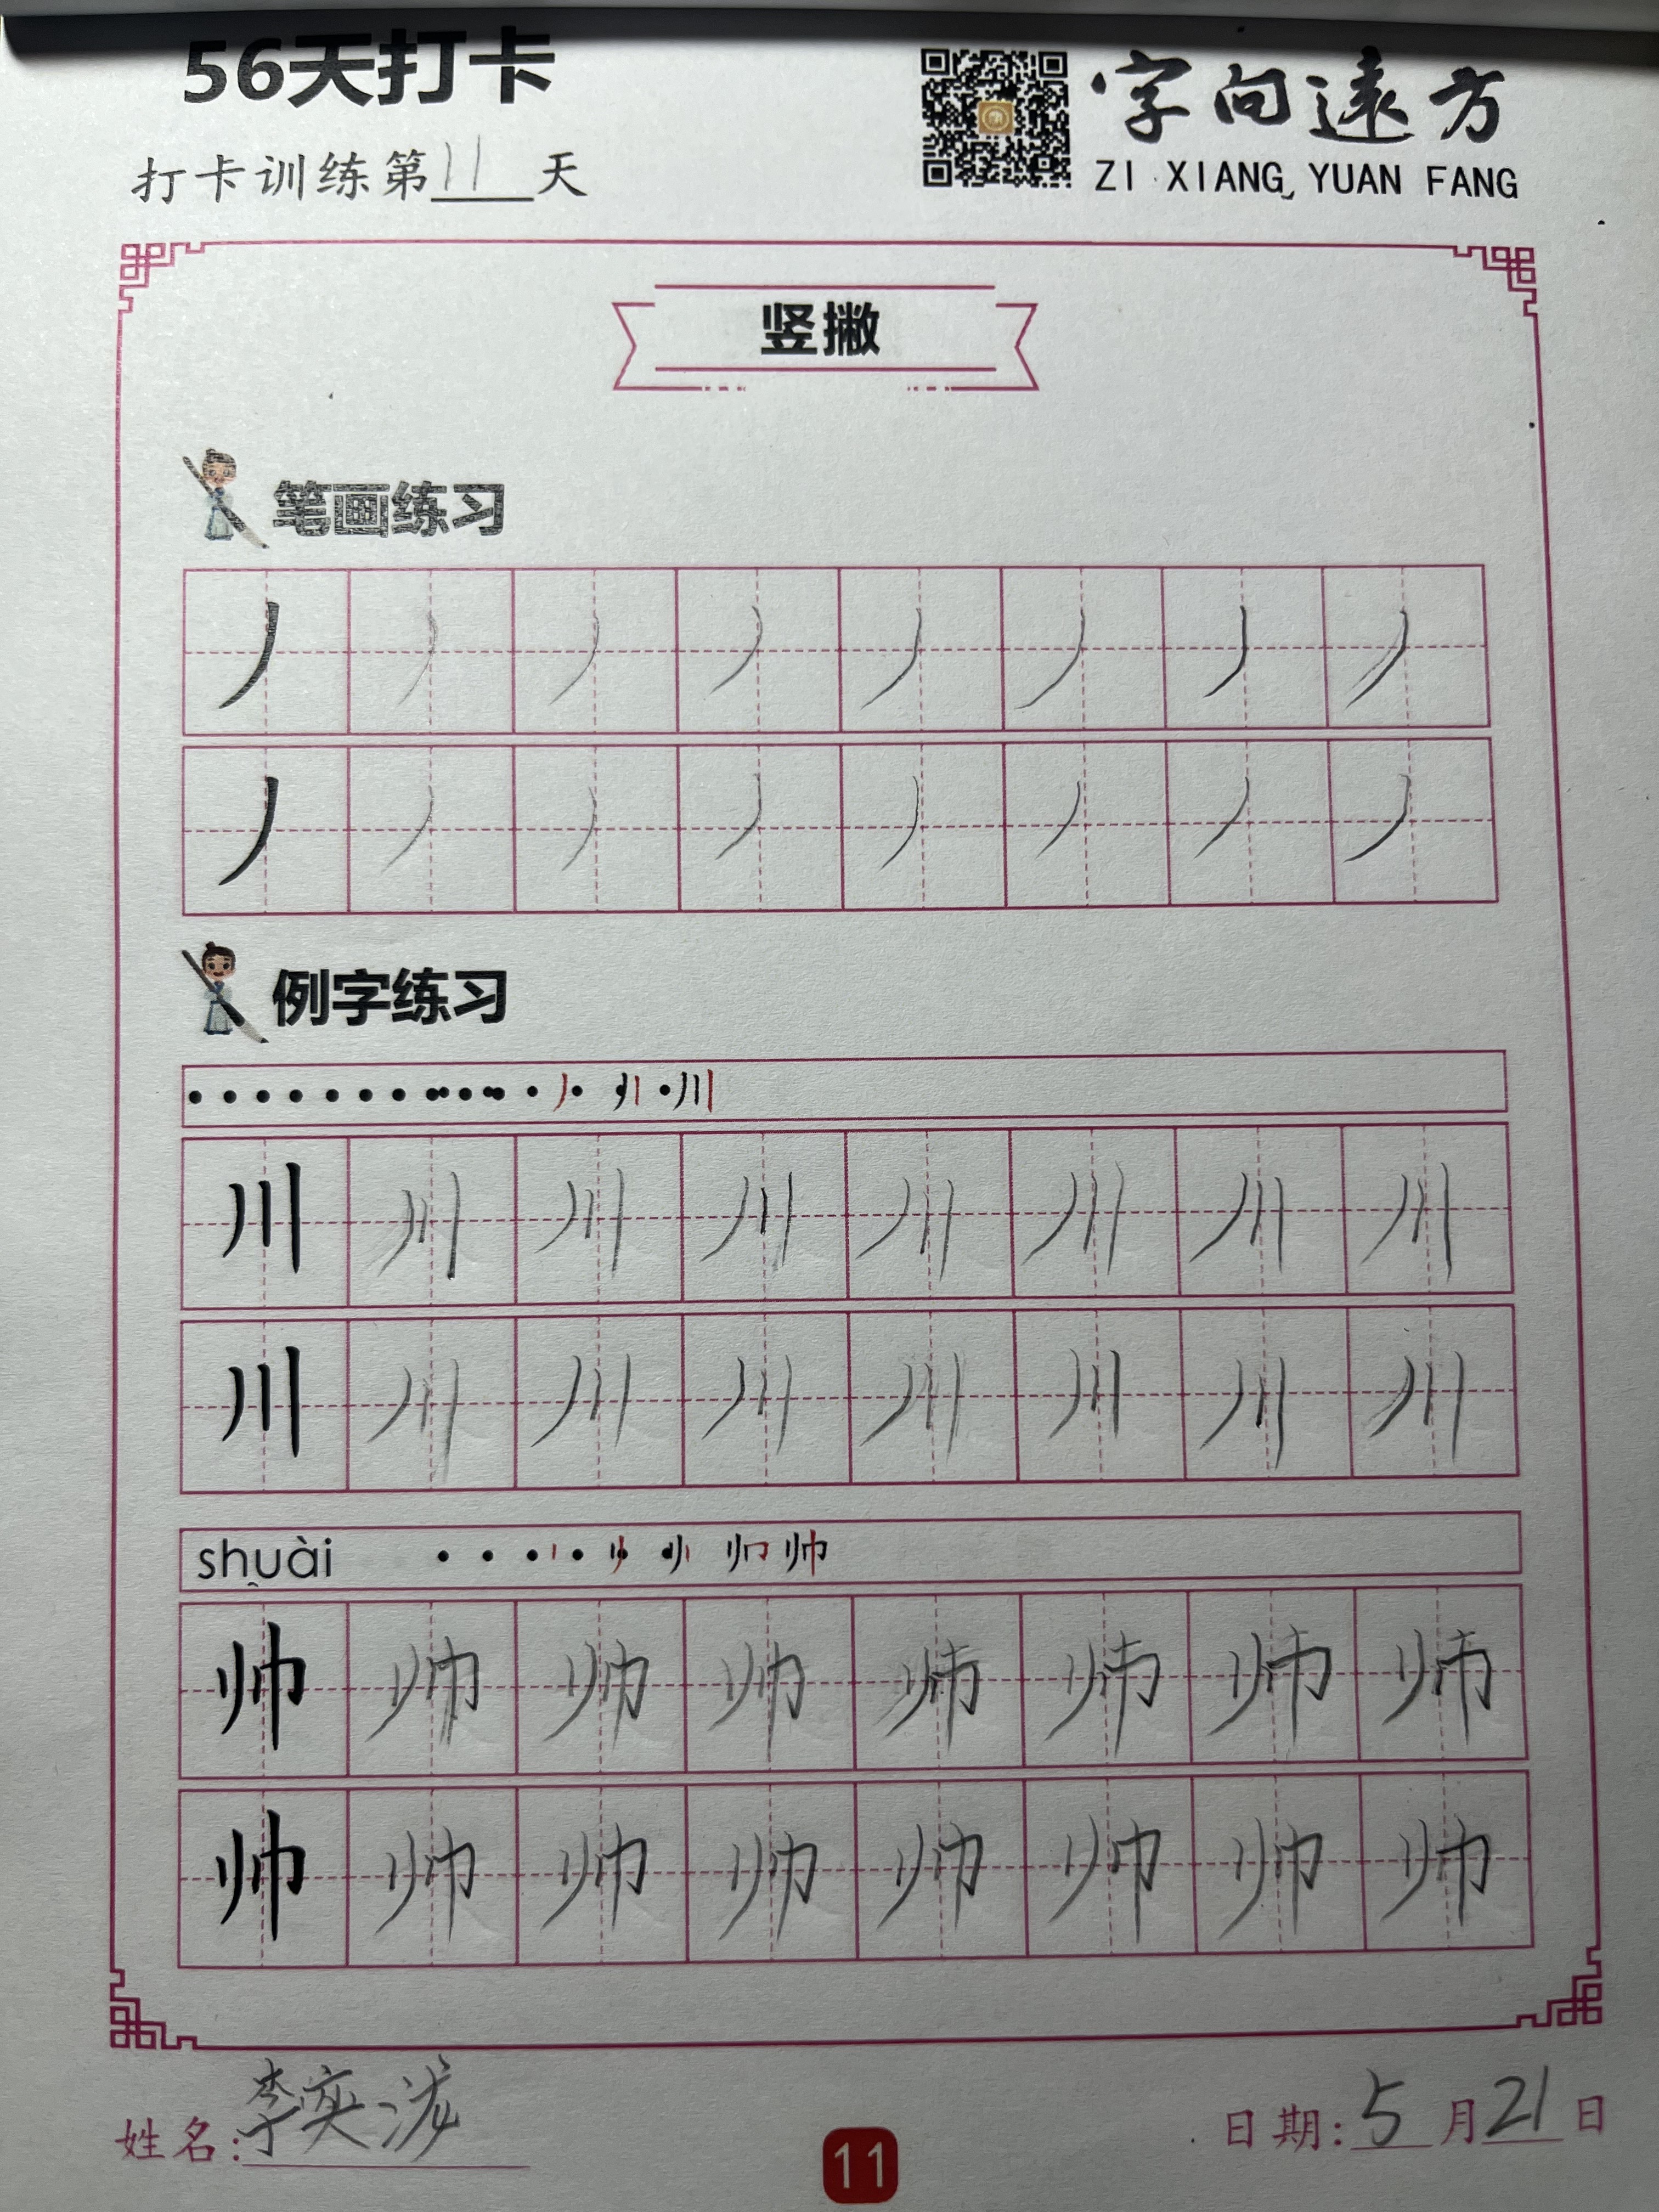 56天打卡
字向遠方
打卡训练第11天
ZI XIANG YUAN FANG
竖撇
笔画练习
丿丿丿丿丿丿丿丿
丿丿丿丿丿丿丿丿
例字练习
川川川川川川川川
川川川川川川川川
shuài
帅帅帅帅帅帅帅帅
帅帅帅帅帅帅帅帅
姓名:李奕 日期:5月21日
11